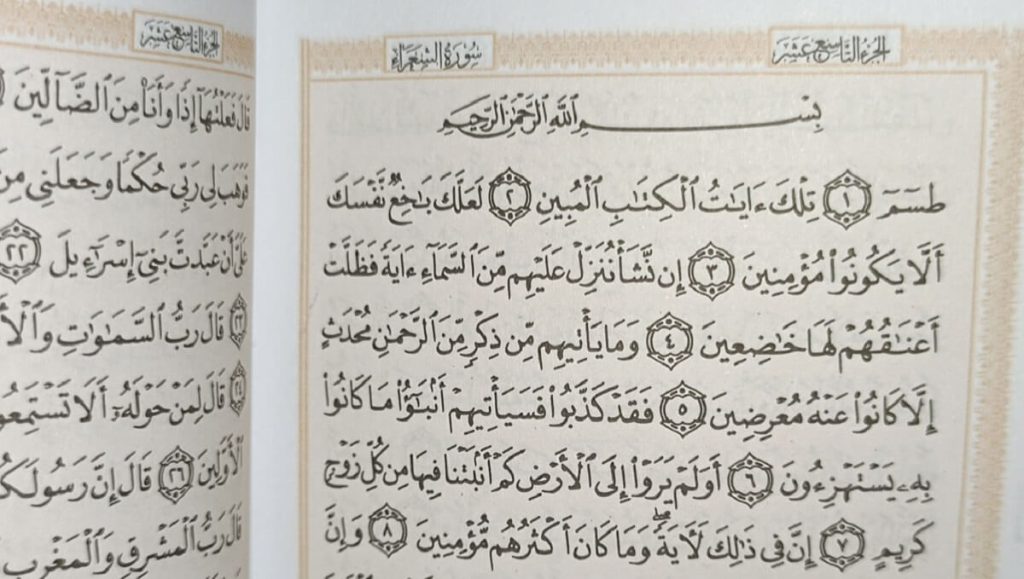 الجُزءُ التَّاسِعَ عَشَرَ سُورَةُ الشُّعَرَاءِ
بِسْمِ ٱللَّهِ ٱلرَّحْمَٰنِ ٱلرَّحِيمِ
طسٓمٓ ١ تِلْكَ ءَايَٰتُ ٱلْكِتَٰبِ ٱلْمُبِينِ ٢ لَعَلَّكَ بَٰخِعٌ نَّفْسَكَ
أَلَّا يَكُونُوا۟ مُؤْمِنِينَ ٣ إِن نَّشَأْ نُنَزِّلْ عَلَيْهِم مِّنَ ٱلسَّمَآءِ ءَايَةً فَظَلَّتْ
أَعْنَٰقُهُمْ لَهَا خَٰضِعِينَ ٤ وَمَا يَأْتِيهِم مِّن ذِكْرٍ مِّنَ ٱلرَّحْمَٰنِ مُحْدَثٍ
إِلَّا كَانُوا۟ عَنْهُ مُعْرِضِينَ ٥ فَقَدْ كَذَّبُوا۟ فَسَيَأْتِيهِمْ أَنۢبَٰٓؤُا۟ مَا كَانُوا۟
بِهِۦ يَسْتَهْزِءُونَ ٦ أَوَلَمْ يَرَوْا۟ إِلَى ٱلْأَرْضِ كَمْ أَنۢبَتْنَا فِيهَا مِن كُلِّ زَوْجٍ
كَرِيمٍ ٧ إِنَّ فِى ذَٰلِكَ لَءَايَةً ۖ وَمَا كَانَ أَكْثَرُهُم مُّؤْمِنِينَ ٨ وَإِنَّ
الجُزءُ التَّاسِعَ عَشَرَ
قَالَ فَعَلْتُهَآ إِذًا وَأَنَا۠ مِنَ ٱلضَّآلِّينَ
فَوَهَبَ لِى رَبِّى حُكْمًا وَجَعَلَنِى مِنَ
عَلَىَّ أَنْ عَبَّدتَّ بَنِىٓ إِسْرَٰٓءِيلَ ٢٢
٢٣ قَالَ رَبُّ ٱلسَّمَٰوَٰتِ وَٱلْأَ
٢٤ قَالَ لِمَنْ حَوْلَهُۥٓ أَلَا تَسْتَمِعُو
ٱلْأَوَّلِينَ ٢٦ قَالَ إِنَّ رَسُولَكُ
قَالَ رَبُّ ٱلْمَشْرِقِ وَٱلْمَغْرِبِ